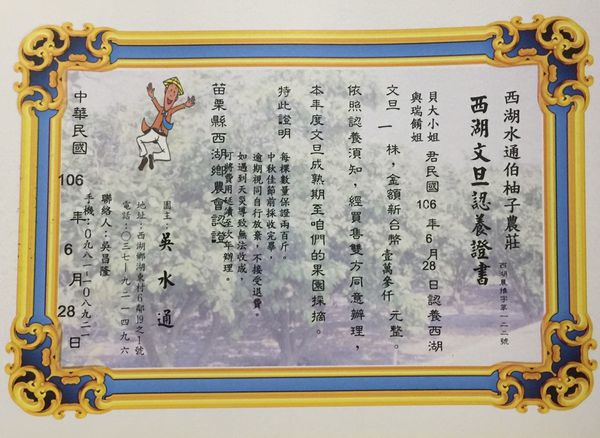 西湖水通伯柚子農莊
西湖文旦認養證書
西湖農推字第一二二號
貝大小姐
與瑞鏽姐
君民國106年6月28日認養西湖
文旦一株，金額新台幣壹萬參仟元整。
依照認養須知，經買售雙方同意辦理，
本年度文旦成熟期至咱們的果園採摘。
特此證明
每棵數量保證兩百斤。
中秋佳節前採收完畢，
逾期視同自行放棄，不接受退費。
如遇到天災導致無法收成，
可將費用延續至次年辦理。
苗栗縣西湖鄉農會認證
園主：吳水通
地址：西湖鄉湖東村6鄰19之1號
電話：０三七｜九二一四九六
聯絡人：吳昌隆
手機：０九八一｜０八九二一
中華民國106年6月28日